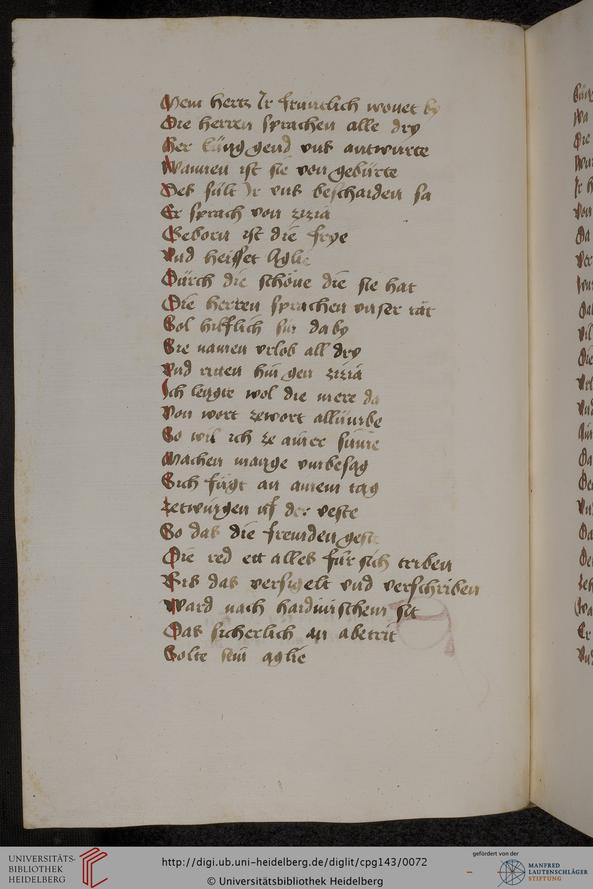 Mein hertz Ir früntlich wonet by
Die herren sprachen alle dry
Her küng gend uns antwurte
Wannen ist sie von gebürte
Des sült Ir uns beschaiden sa
Er sprach von zizia
Geborn ist die frye
Vnd heisset Aglie
Durch die schöne die sie hat
Die herren sprachen vnser rät
Sol hilflich sin da by
Sie namen vrlob all dry
Vnd ritten hin gen zizia
Ich lengte wol die mere da
Von wort zewort
So wil ich ze ainer sume
Machen mange vmbesag
Sich fügt an ainem tag
zetwingen uf der veste
So das die fremden geste
Die red ett alles für sich triben
Bis das versigelt vnd verschriben
Ward nach hardinischem sit
Das sicherlich an abetrit
Solte sein aglie
UNIVERSITÄTS-
BIBLIOTHEK
HEIDELBERG
http://digi.ub.uni-heidelberg.de/diglit/cpg143/0072
© Universitätsbibliothek Heidelberg
gefördert von der
MANFRED
LAUTENSCHLÄGER
STIFTUNG